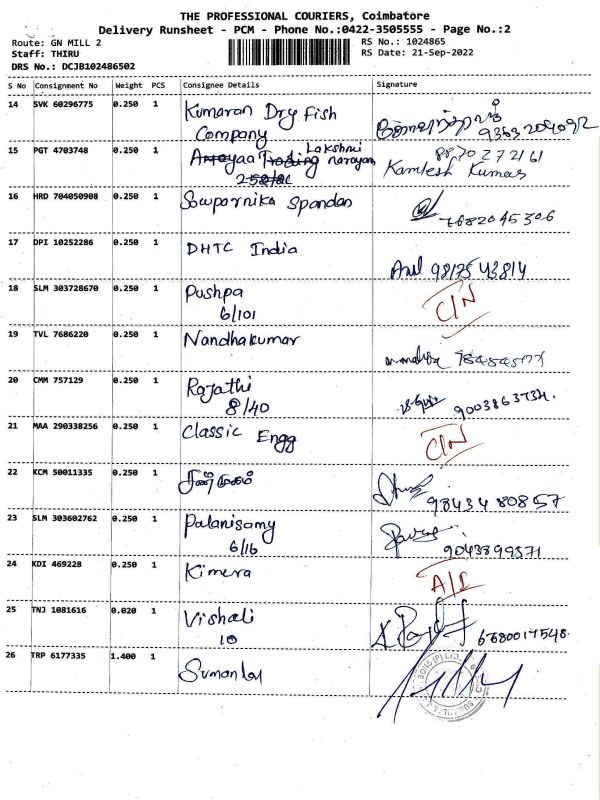 THE PROFESSIONAL COURIERS, Coimbatore
Delivery Runsheet - PCM - Phone No.:0422-3505555 - Page No.:2
Route: GN MILL 2
Staff: THIRU
DRS No.: DCJB102486502
RS No.: 1024865
RS Date: 21-Sep-2022
S No Consignment No Weight PCS Consignee Details Signature
14 SVK 60296775 0.250 1 Kumaran Dry Fish
Company
15 PGT 4703748 0.250 1 Lakshmi
narayan
8870272161
Kamlesh Kumar
16 HRD 704050908 0.250 1 Sowparnika Spandan
7682045306
17 DPI 10252286 0.250 1 DHTC India
Anil 9817543814
18 SLM 303728670 0.250 1 Pushpa C/N
6/101
19 TVL 7686220 0.250 1 Nandhakumar
20 CMM 757129 0.250 1 Rajathi
8/40 9003863734
21 MAA 290338256 0.250 1 Classic Engg C/N
22 KCM 50011335 0.250 1 சண்முகம்
9843480857
23 SLM 303602762 0.250 1 Palanisamy
6/16 9043899371
24 KDI 469228 0.250 1 Kimera
25 TNJ 1081616 0.020 1 Vishali
10 6380017548
26 TRP 6177335 1.400 1